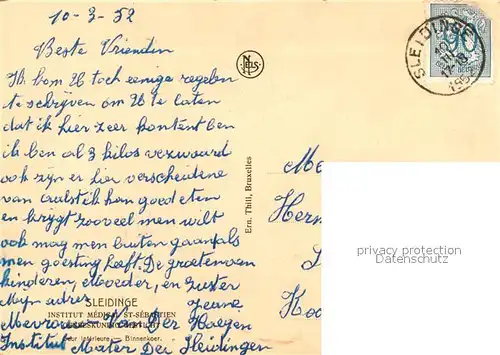 10-3-52
Beste Vrienden
Ik kom U toch eenige regelen
te schrijven om U te laten
dat ik hier zeer kontent ben
ik ben al 3 kilos verzwaard
ook zyn er hier verscheidene
van aalst ik kan goed eten
en krygt zooveel men wilt
ook mag men buiten gaan als
men goesting heeft. De groeten van
kinderen, Moeder, en zuster
Myn adres Jeane
Mevrouw Van Der Haegen
Institut Mater Dei Sleidingen
SLEIDINGE
INSTITUT MÉDICAL ST-SÉBASTIEN
Cour intérieure. - Binnenkoer.
NELS
Ern. Thill, Bruxelles
SLEIDINGE
90
Me
Her
Ko
privacy protection
Datenschutz